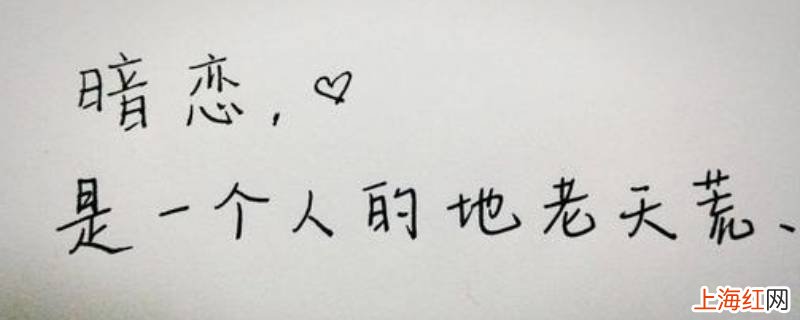 暗恋,♡
是一个人的地老天荒、
上海红网